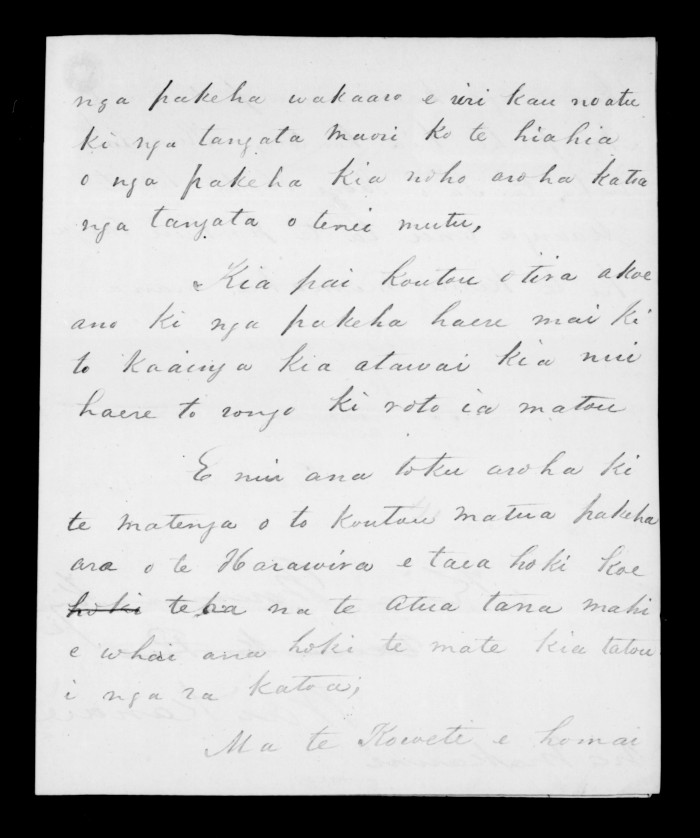 nga pakeha wakaaro e riri kau noatu
ki nga tangata maori ko te hiahia
o nga pakeha kia noho aroha katoa
nga tangata o tenei mutu,
Kia pai koutou otira a koe
ano ki nga pakeha haere mai ki
to kaainga kia atawai kia nui
haere to rongo ki roto ia matou
E nui ana toku aroha ki
te matenga o to koutou matua pakeha
ara o te Harawira e taea hoki koe
hoki te ha na te Atua tana mahi
e whai ana hoki te mate kia tatou
i nga ra katoa;
Ma te Koweti e homai